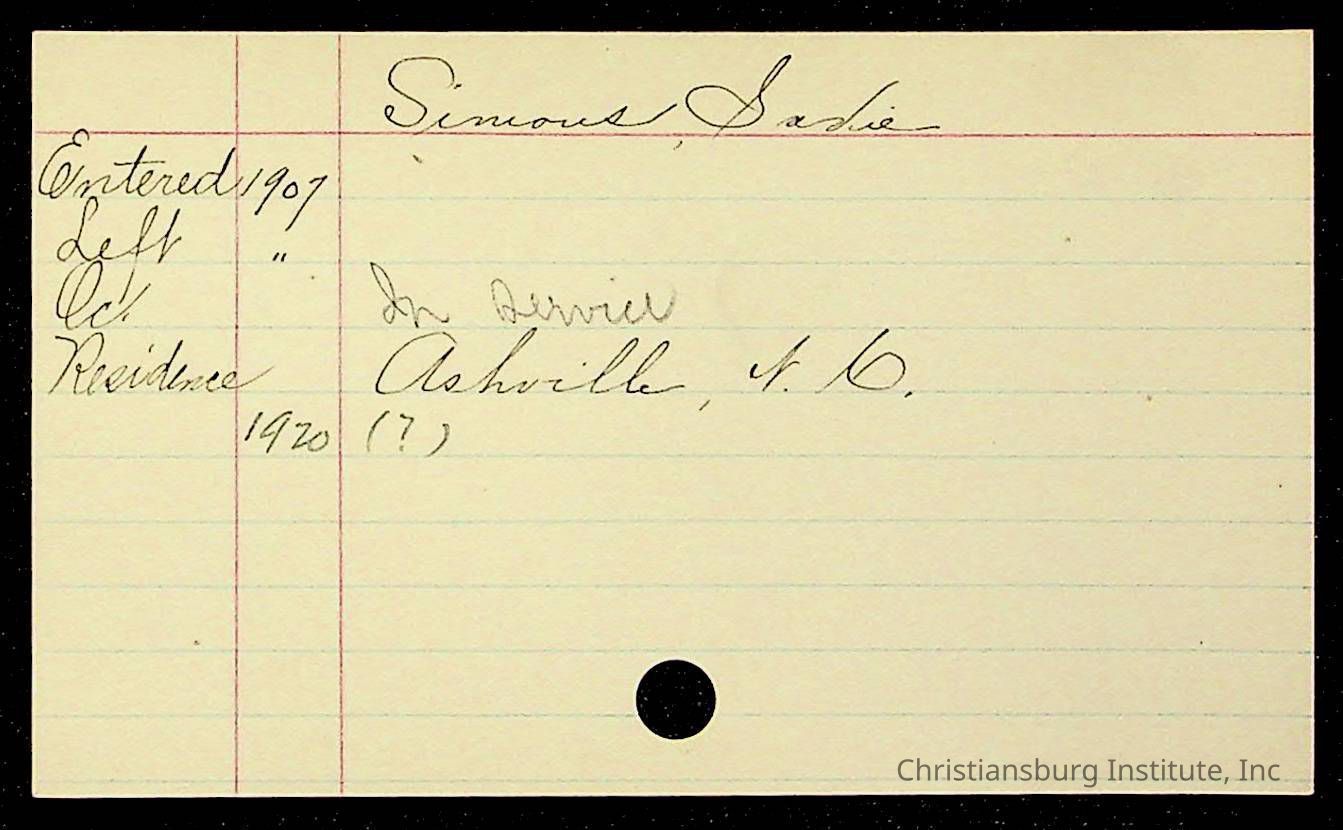 Simons, Sadie
Entered 1907
Left "
Oc. In service
Residence Ashville, N. C.
1920 (?)
Christiansburg Institute, Inc